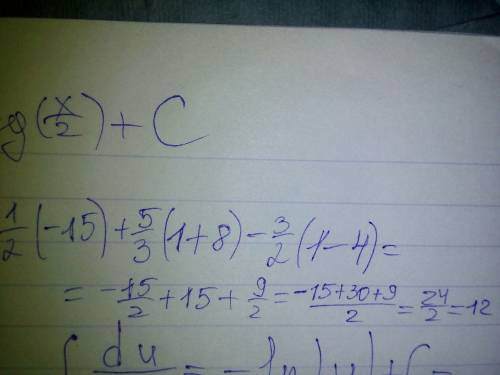 g(x/2) + C
1/2 (-15) + 5/3 (1+8) - 3/2 (1-4) =
= -15/2 + 15 + 9/2 = -15+30+9/2 = 24/2 = 12
∫ du/ = - ln|u| + C =